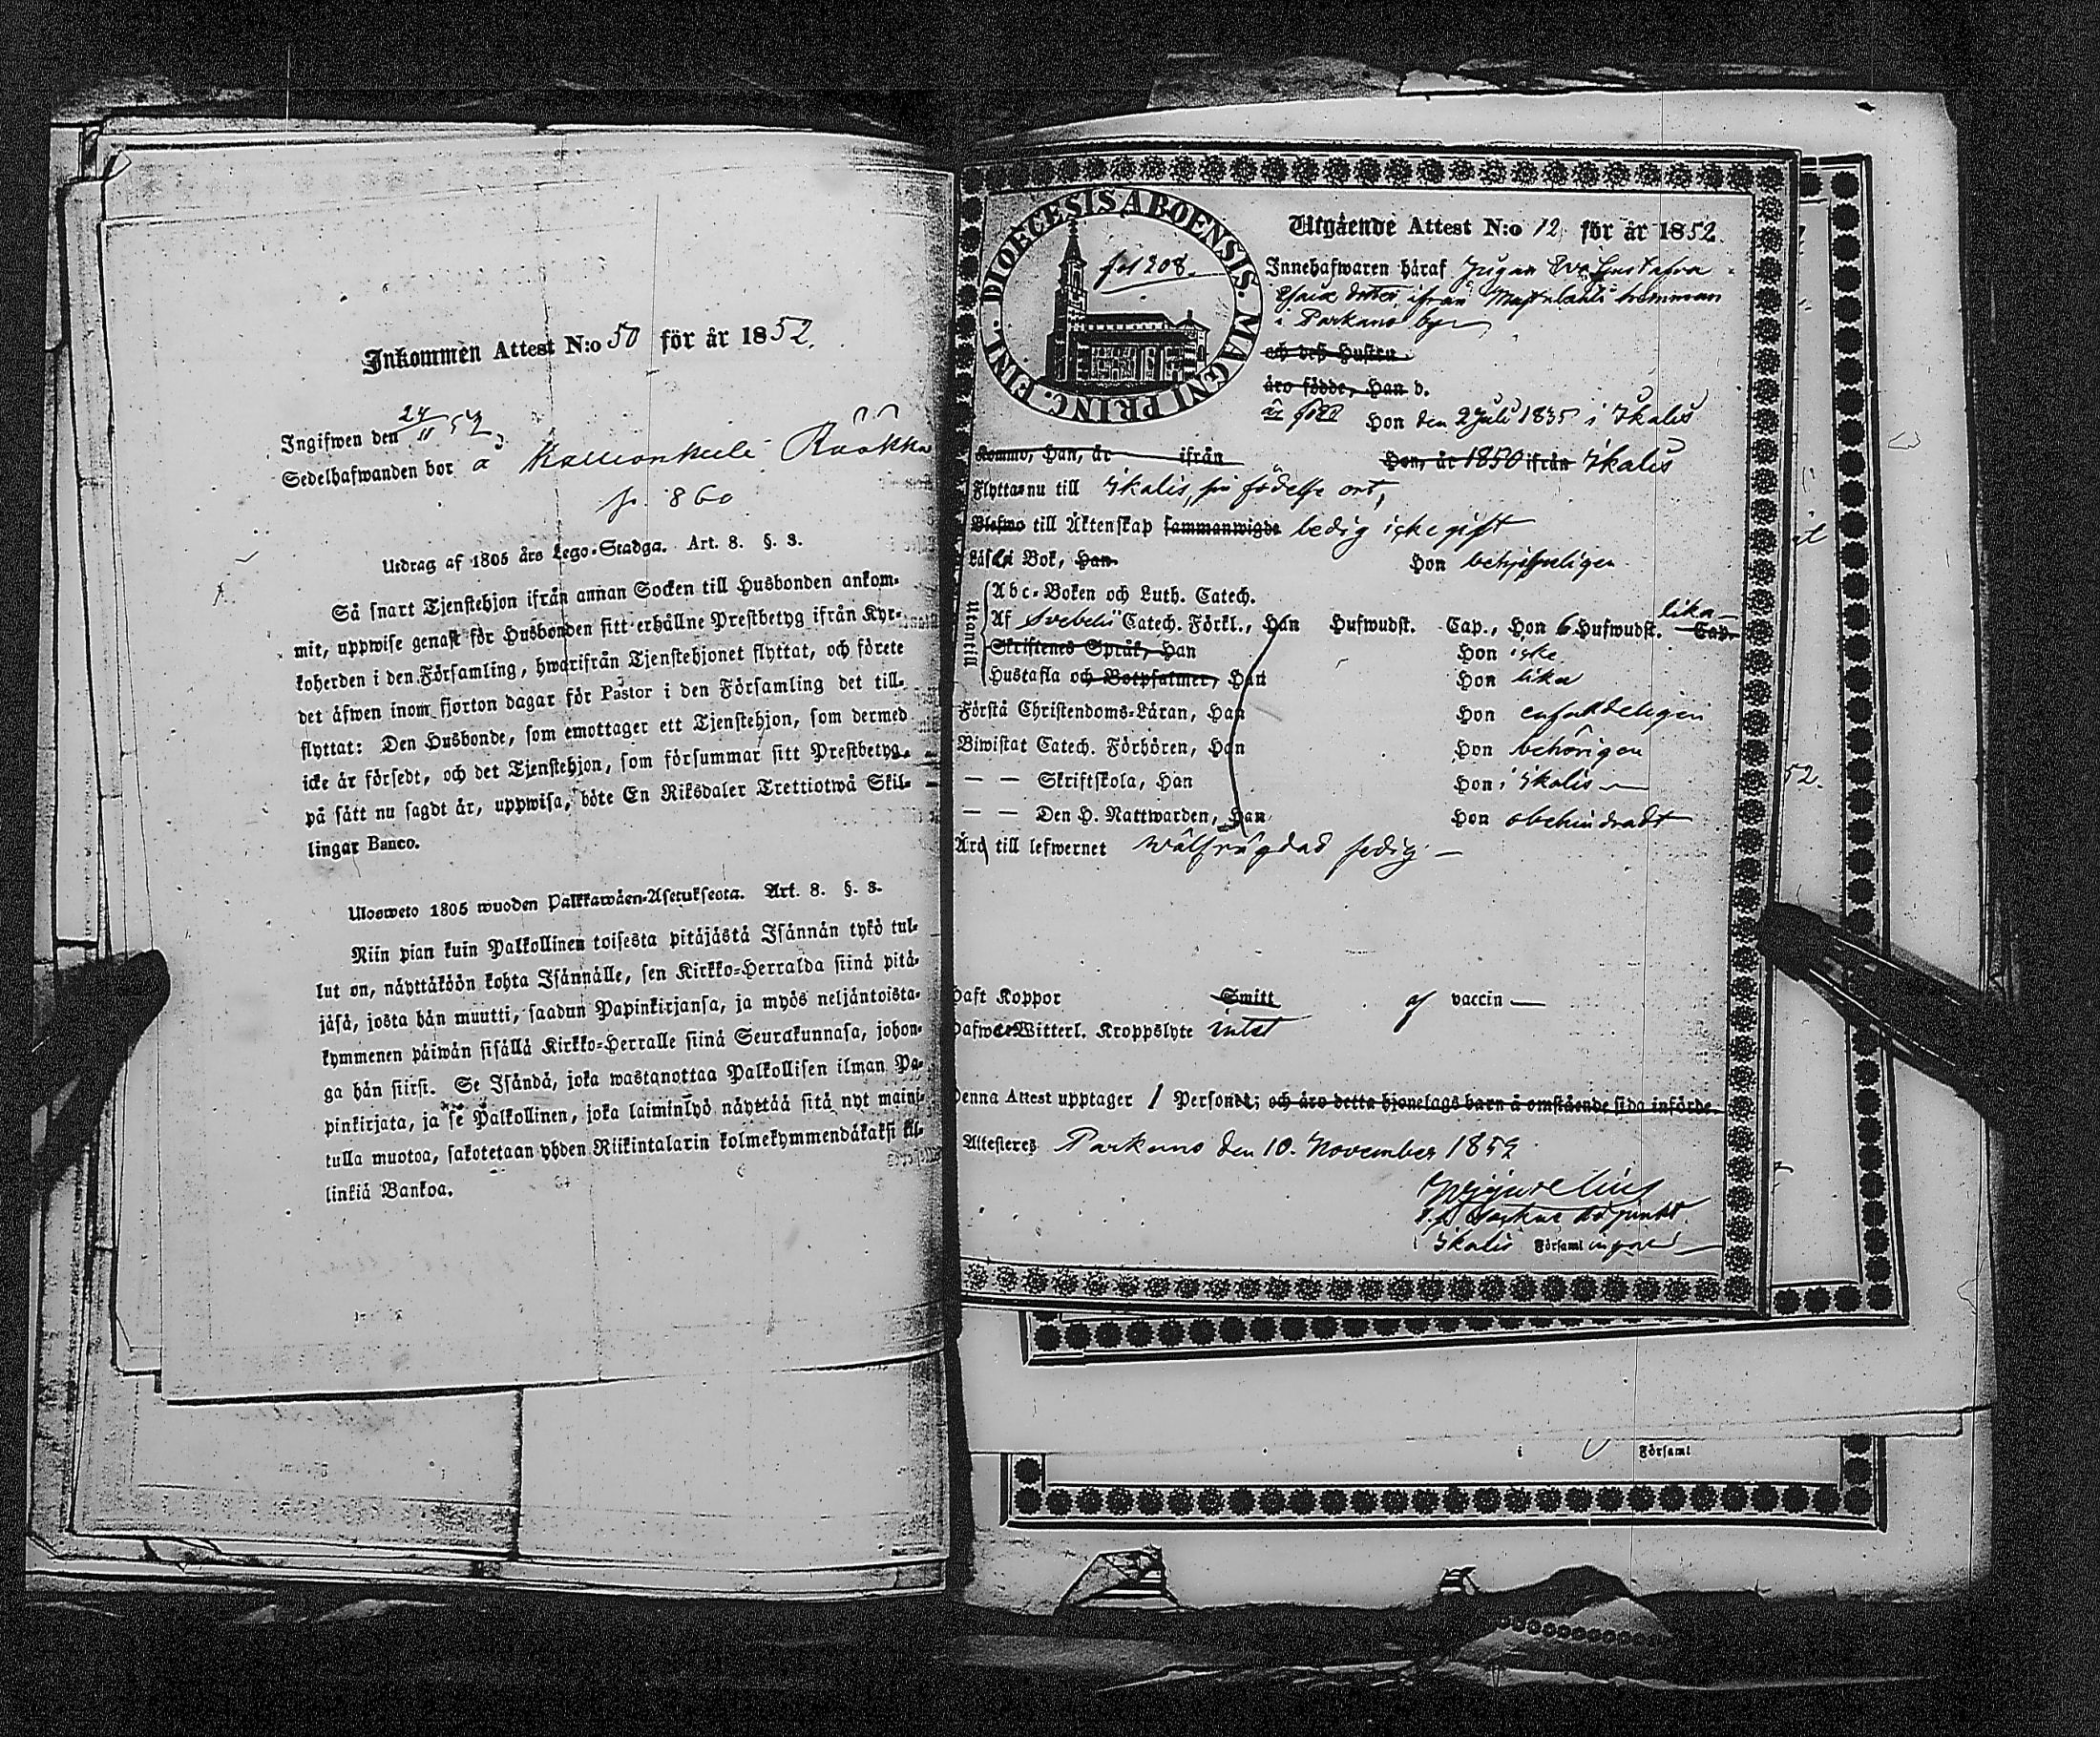 Inkommen Attest N:o 50 för år 1852.
Ingifwen den 24/11 52
Sedelhafwanden bor å
p. 860
Utdrag af 1805 års Lego-Stadga. Art. 8. §. 3.
Så snart Tjenstehjon ifrån annan Socken till Husbonden ankom-
mit, uppwise genast för Husbonden sitt erhållne Prestbetyg ifrån Kyr-
koherden i den Församling, hwarifrån Tjenstehjonet flyttat, och förete
det äfwen inom fjorton dagar för Pastor i den Församling det till-
flyttat: Den Husbonde, som emottager ett Tjenstehjon, som dermed
icke är försedt, och det Tjenstehjon, som försummar sitt Prestbetyg,
på sätt nu sagdt är, uppwisa, böte En Riksdaler Trettiotwå Skil-
lingar Banco.
Ulosweto 1805 wuoden Palkkawäen-Asetuksesta. Art. 8. §. 3.
Niin pian kuin Palkollinen toisesta pitäjästä Isännän tykö tul-
lut on, näyttäköön kohta Isännälle, sen Kirkko-Herralda siinä pitä-
jäsä, josta hän muutti, saadun Papinkirjansa, ja myös neljäntoista-
kymmenen päiwän sisällä Kirkko-Herralle siinä Seurakunnasa, johon-
ga hän siirsi. Se Isändä, joka wastanottaa Palkollisen ilman Pa-
pinkirjata, ja se Palkollinen, joka laiminlyö näyttää sitä nyt maini-
tulla muotoa, sakotetaan yhden Riikintalarin kolmekymmendäkaksi kil-
linkiä Bankoa.
DIOECESIS ABOENSIS. MAGNI PRINC. FINL.
fol 208.
Utgående Attest N:o 12 för år 1852.
Innehafwaren häraf Pigan Eva Gustafva
Isaks dotter, ifrån hemman
i Parkano by
och dess Hustru
äro födde, Han d.
är född Hon den 2 Juli 1835 i Ikalis
Kommo, Han, år ifrån Hon, år 1850 ifrån Ikalis
Flyttar nu till Ikalis, sin födelse ort,
Blefwo till Äktenskap sammanwigde ledig icke gift
Läsa i Bok, Han Hon behjelpeligen
Utantill
Abc-Boken och Luth. Catech.
Af Svebelii Catech. Förkl., Han Hufwudst. Cap., Hon 6 Hufwudst. Cap. lika
Skriftenes Språk, Han Hon icke
Hustafla och Botpsalmer, Han Hon lika
Förstå Christendoms-Läran, Han Hon enfaldeligen
Biwistat Catech. Förhören, Han Hon behörigen
— — Skriftskola, Han Hon i Ikalis
— — Den H. Nattwarden, Han Hon obehindradt
Är till lefwernet wälfrägdad
Haft Koppor Smitt af vaccin
Hafwer Witterl. Kroppslyte intet
Denna Attest upptager 1 Person; och äro detta hjonelags barn å omstående sida införde.
Attesteres Parkano den 10. November 1852
adjunkt
i Ikalis Församl
i Församl
52.